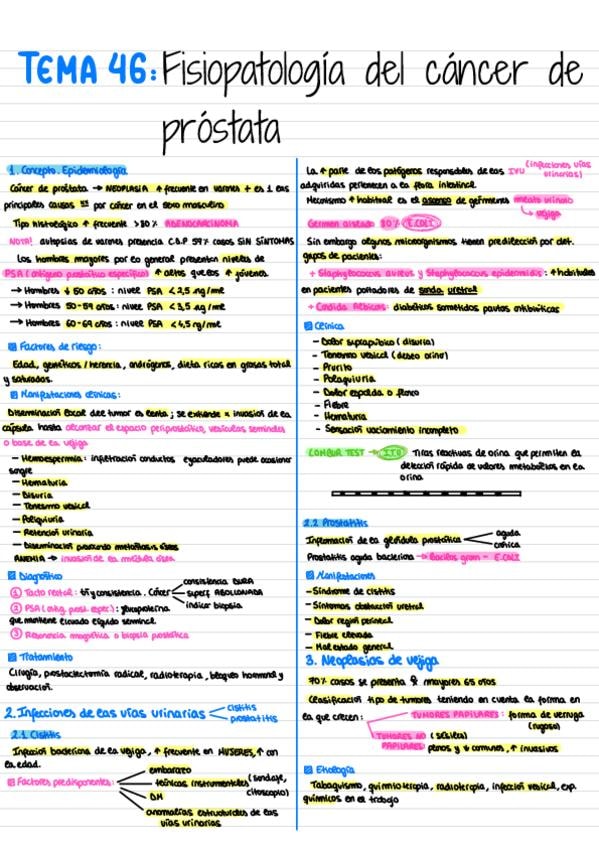 TEMA 46: Fisiopatología del cáncer de
próstata
1. Concepto. Epidemiología
Cáncer de próstata → NEOPLASIA ↑ frecuente en varones + es 1 las
principales causas por cáncer en el sexo masculino
Tipo histológico ↑ frecuente >80% ADENOCARCINOMA
NOTA! autopsias de varones presencia C.D.P 59% casos SIN SÍNTOMAS
Los hombres mayores por lo general presentan niveles de
PSA (antígeno prostático específico) ↑ altos que los ↑ jóvenes.
→ Hombres ↓ 50 años: nivel PSA < 2,5 ng/ml
→ Hombres 50-59 años: nivel PSA < 3,5 ng/ml
→ Hombres 60-69 años: nivel PSA < 4,5 ng/ml
Factores de riesgo:
Edad, genéticos / herencia, andrógenos, dieta rica en grasas total
y saturadas.
Manifestaciones clínicas:
Diseminación local del tumor es lenta; se extiende x invasión de la
cápsula hasta alcanzar el espacio periprostático, vesículas seminales
o base de la vejiga
— Hemospermia: infiltración conductos eyaculadores puede ocasionar
sangre
— Hematuria
— Disuria
— Tenesmo vesical
— Poliquiuria
— Retención urinaria
— Diseminación provocando metástasis óseas
ANEMIA → invasión de la médula ósea
Diagnóstico
1 Tacto rectal: tñ y consistencia. Cáncer
consistencia DURA
superf. ABOLLONADA
indica biopsia
2 PSA (antíg. prost. espec): glucoproteína
que mantiene licuado líquido seminal
3 Resonancia magnética o biopsia prostática
Tratamiento
Cirugía, prostatectomía radical, radioterapia, bloqueo hormonal y
observación.
2. Infecciones de las vías urinarias
cistitis
prostatitis
2.1 Cistitis
Infección bacteriana de la vejiga, ↑ frecuente en MUJERES, ↑ con
la edad.
Factores predisponentes:
embarazo
técnicas instrumentales (sondaje, citoscopia)
DM
anomalías estructurales de las
vías urinarias
La ↑ parte de los patógenos responsables de las IVU (infecciones vías
urinarias)
adquiridas pertenecen a la flora intestinal.
Mecanismo ↑ habitual es el ascenso de gérmenes meato urinario
→ vejiga
Germen aislado 80% E.COLI
Sin embargo algunos microorganismos tienen predilección por det.
grupos de pacientes:
+ Staphylococcus aureus y Staphylococcus epidermidis: ↑ habituales
en pacientes portadores de sonda uretral
+ Candida Albicans: diabéticos sometidos pautas antibióticas
Clínica
— Dolor suprapúbico (disuria)
— Tenesmo vesical (deseo orina)
— Prurito
— Polaquiuria
— Dolor espalda o flanco
— Fiebre
— Hematuria
— Sensación vaciamiento incompleto
COMBUR TEST → Tiras reactivas de orina que permiten la
detección rápida de valores metabólicos en la
orina
2.2 Prostatitis
Inflamación de la glándula prostática
aguda
crónica
Prostatitis aguda bacteriana → Bacilos gram - E.COLI
Manifestaciones
- Síndrome de cistitis
- Síntomas obstrucción uretral
- Dolor región perineal
- Fiebre elevada
- Mal estado general
3. Neoplasias de vejiga
70% casos se presenta mayores 65 años
Clasificación tipo de tumores teniendo en cuenta la forma en
la que crecen:
TUMORES PAPILARES: forma de verruga
(rugosa)
TUMORES NO (sésiles)
PAPILARES planos y ↓ comunes, ↑ invasivos
Etiología
Tabaquismo, quimioterapia, radioterapia, infección vesical, exp.
químicos en el trabajo